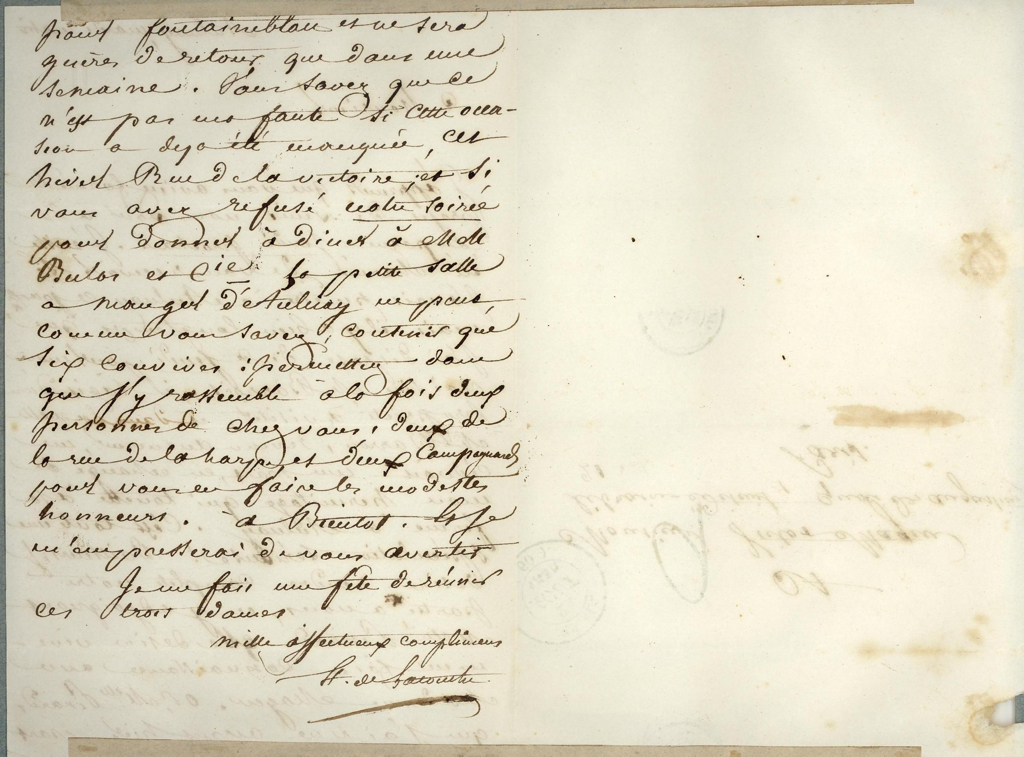 pour fontainebleau et ne sera
guères de retour que dans une
semaine. Vous savez que ce
n'est pas ma faute si cette occa-
sion a deja été manquée, cet
hiver Rue de la victoire, et si
vous avez refusé notre soirée
pour donner à diner à MM
Bulos et Cie. La petite salle
a manger d'Aulnay ne peut
comme vous savez, contenir que
six convives : permettez donc
que j'y rassemble à la fois deux
personnes de chez vous, deux de
la rue de la harpe, et deux Campagnards
pour vous en faire les modestes
honneurs. à Bientot. Et je
m'empresserai de vous avertir
Je me fais une fête de réunir
ces trois dames
mille affectueux complimens
H. de Latouche